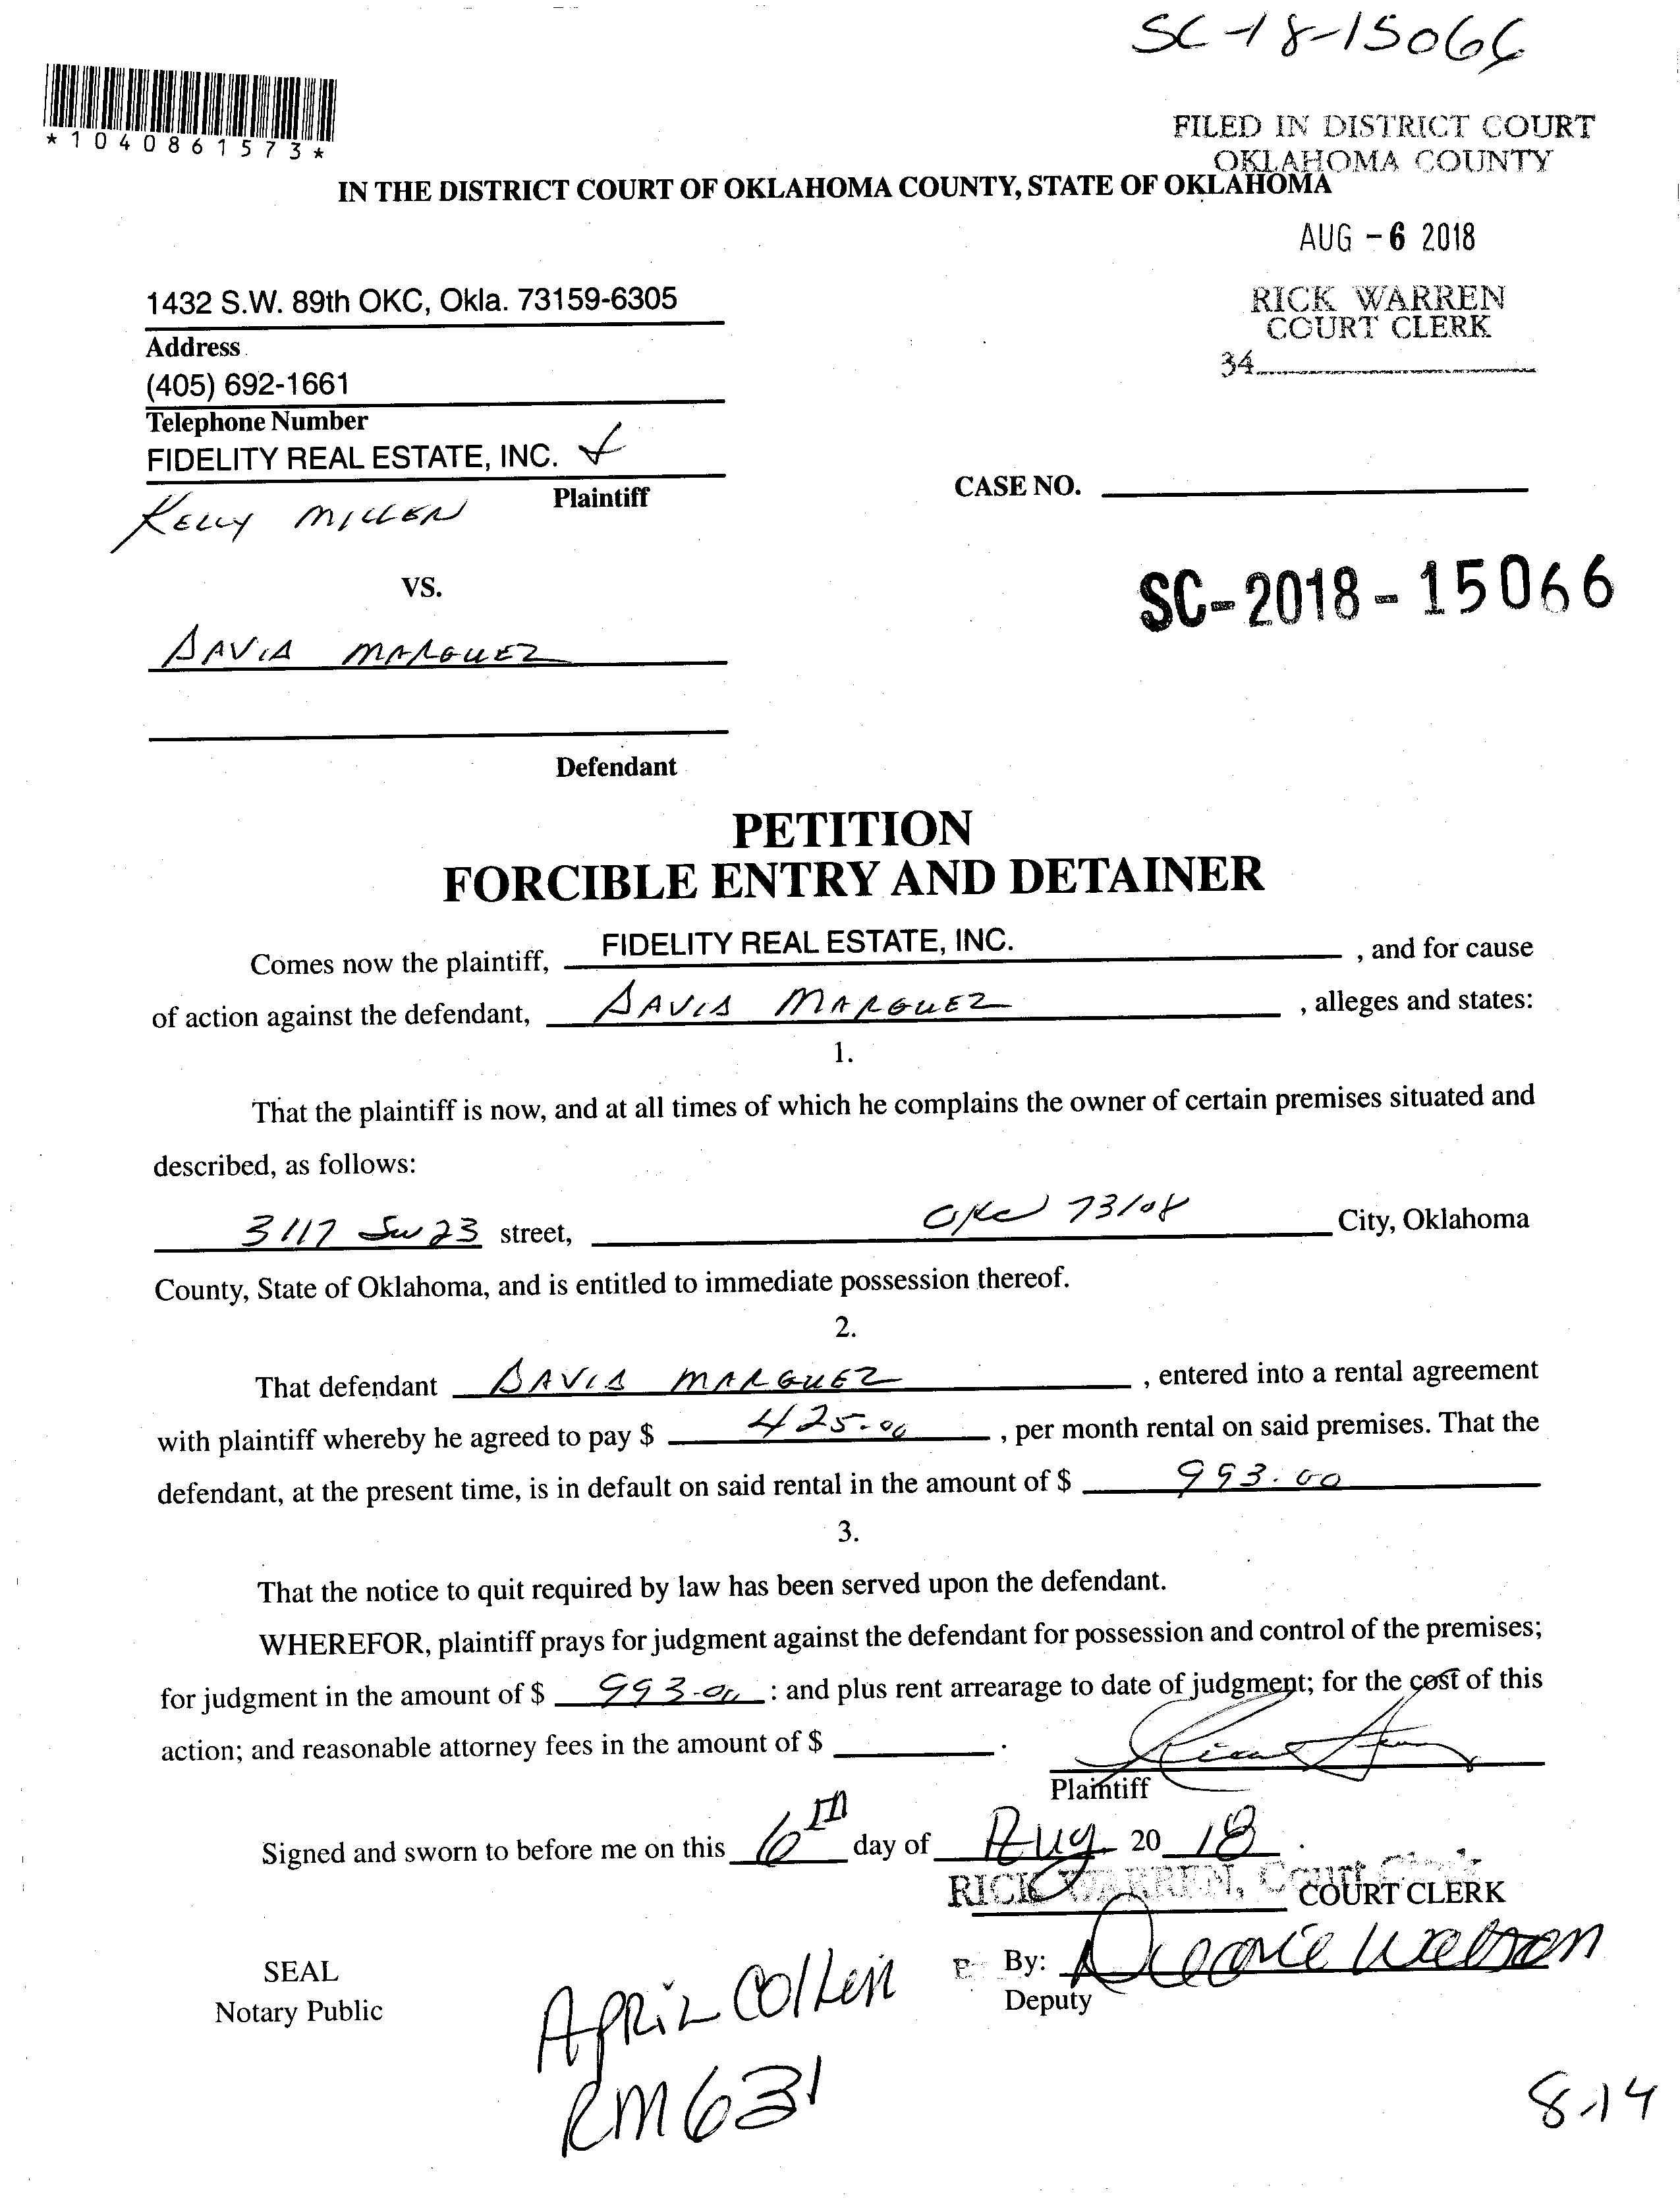 SC-18-15066
*1040861573*
FILED IN DISTRICT COURT
OKLAHOMA COUNTY
IN THE DISTRICT COURT OF OKLAHOMA COUNTY, STATE OF OKLAHOMA
AUG - 6 2018
RICK WARREN
COURT CLERK
34
1432 S.W. 89th OKC, Okla. 73159-6305
Address
(405) 692-1661
Telephone Number
FIDELITY REAL ESTATE, INC. &
Plaintiff
KELLY MILLER
CASE NO.
VS.
SC-2018-15066
DAVID MARQUEZ
Defendant
PETITION
FORCIBLE ENTRY AND DETAINER
Comes now the plaintiff, FIDELITY REAL ESTATE, INC. , and for cause
of action against the defendant, DAVID MARQUEZ , alleges and states:
1.
That the plaintiff is now, and at all times of which he complains the owner of certain premises situated and
described, as follows:
3117 SW 23 street, OKC 73108 City, Oklahoma
County, State of Oklahoma, and is entitled to immediate possession thereof.
2.
That defendant DAVID MARQUEZ , entered into a rental agreement
with plaintiff whereby he agreed to pay $ 425.00 , per month rental on said premises. That the
defendant, at the present time, is in default on said rental in the amount of $ 993.00
3.
That the notice to quit required by law has been served upon the defendant.
WHEREFOR, plaintiff prays for judgment against the defendant for possession and control of the premises;
for judgment in the amount of $ 993.00 : and plus rent arrearage to date of judgment; for the cost of this
action; and reasonable attorney fees in the amount of $ .
Plaintiff
Signed and sworn to before me on this 6TH day of Aug 20 18 .
RICK WARREN, Court Clerk COURT CLERK
By:
Deputy
SEAL
Notary Public
APRIL Collen
RM 631
8-14